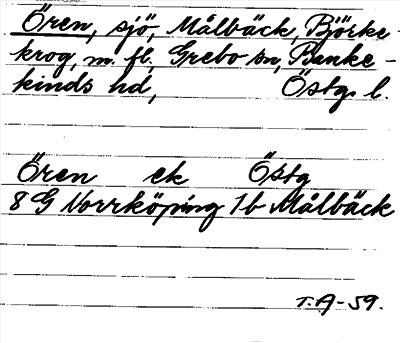 Ören, sjö, Målbäck, Björke-
krog, m. fl., Grebo sn, Banke-
kinds hd, Östg. l.
Ören ek Östg
8 G Norrköping 1b Målbäck
T.A-59.